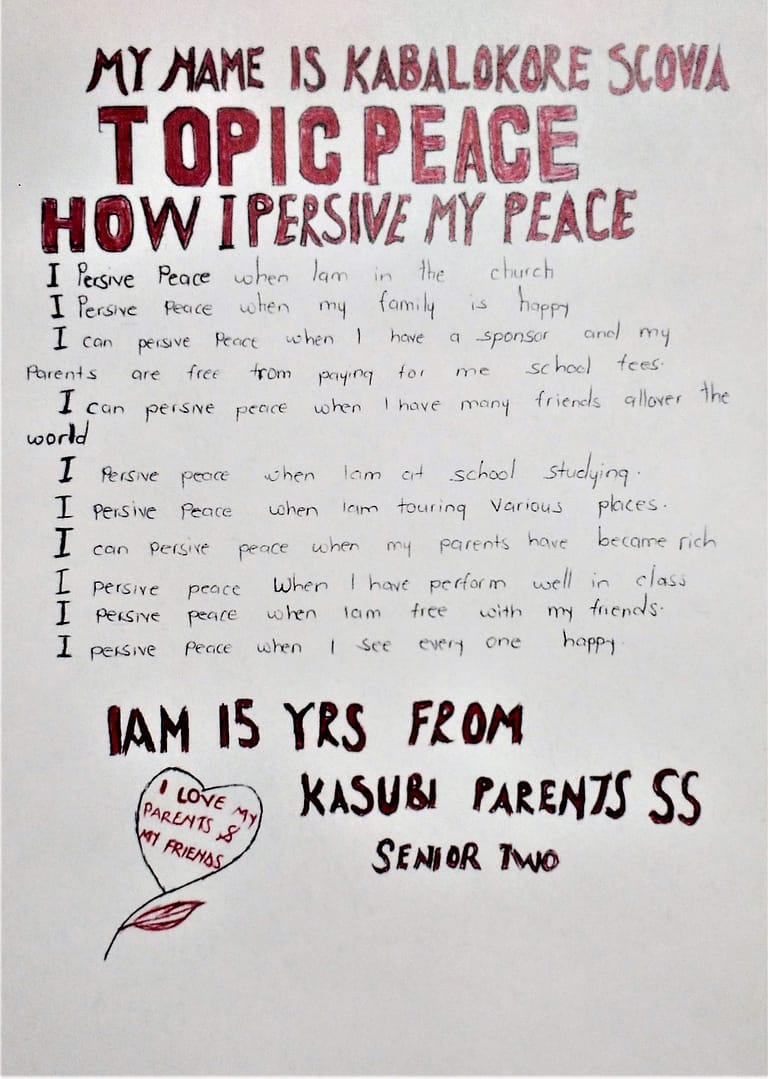 MY NAME IS KABALOKORE SCOVIA
TOPIC PEACE
HOW I PERSIVE MY PEACE
I Persive Peace when Iam in the church
I Persive Peace when my family is happy
I can persive Peace when I have a sponsor and my
Parents are free from paying for me school fees.
I can persive peace when I have many friends allover the
world
I Persive peace when Iam at school studying.
I persive Peace when Iam touring Various places.
I can Persive peace when my parents have became rich
I persive peace When I have perform well in class
I persive peace when Iam free with my friends.
I persive Peace when I see every one happy.
IAM 15 YRS FROM
KASUBI PARENTS SS
SENIOR TWO
I LOVE MY
PARENTS &
MY FRIENDS